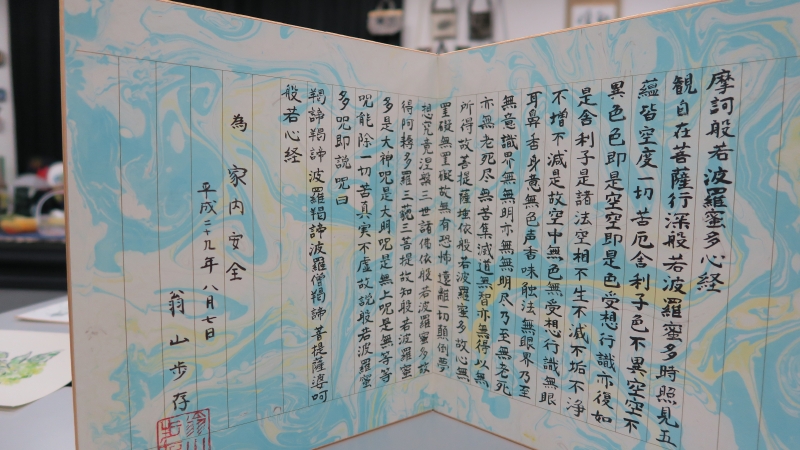 摩訶般若波羅蜜多心経
観自在菩薩行深般若波羅蜜多時照見五
蘊皆空度一切苦厄舎利子色不異空空不
異色色即是空空即是色受想行識亦復如
是舎利子是諸法空相不生不滅不垢不浄
不増不減是故空中無色無受想行識無眼
耳鼻舌身意無色声香味触法無眼界乃至
無意識界無無明亦無無明尽乃至無老死
亦無老死尽無苦集滅道無智亦無得以無
所得故菩提薩埵依般若波羅蜜多故心無
罣礙無罣礙故無有恐怖遠離一切顛倒夢
想究竟涅槃三世諸佛依般若波羅蜜多故
得阿耨多羅三藐三菩提故知般若波羅蜜
多是大神呪是大明呪是無上呪是無等等
呪能除一切苦真実不虚故説般若波羅蜜
多呪即説呪曰
羯諦羯諦 波羅羯諦 波羅僧羯諦 菩提薩婆呵
般若心経
為 家内安全
平成二九年八月七日
翁山歩存